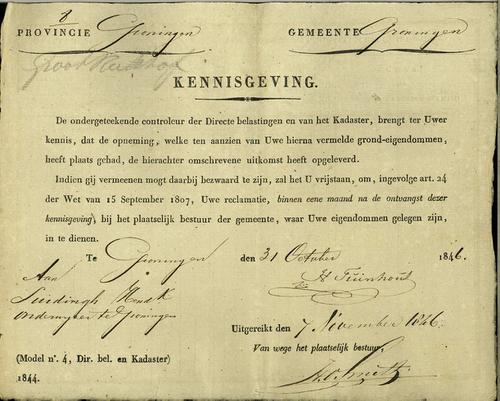 8
PROVINCIE Groningen GEMEENTE Groningen
Groot Kerkhof
KENNISGEVING.
De ondergeteekende controleur der Directe belastingen en van het Kadaster, brengt ter Uwer
kennis, dat de opneming, welke ten aanzien van Uwe hierna vermelde grond-eigendommen,
heeft plaats gehad, de hierachter omschrevene uitkomst heeft opgeleverd.
Indien gij vermeenen mogt daarbij bezwaard te zijn, zal het U vrijstaan, om, ingevolge art. 24
der Wet van 15 September 1807, Uwe reclamatie, binnen eene maand na de ontvangst dezer
kennisgeving, bij het plaatselijk bestuur der gemeente, waar Uwe eigendommen gelegen zijn,
in te dienen.
Te Groningen den 31 October 1846.
Aan H Tuinhout
Hend k
te Groningen
Uitgereikt den 7 November 1846.
Van wege het plaatselijk bestuur,
(Model n°. 4, Dir. bel. en Kadaster)
1844.